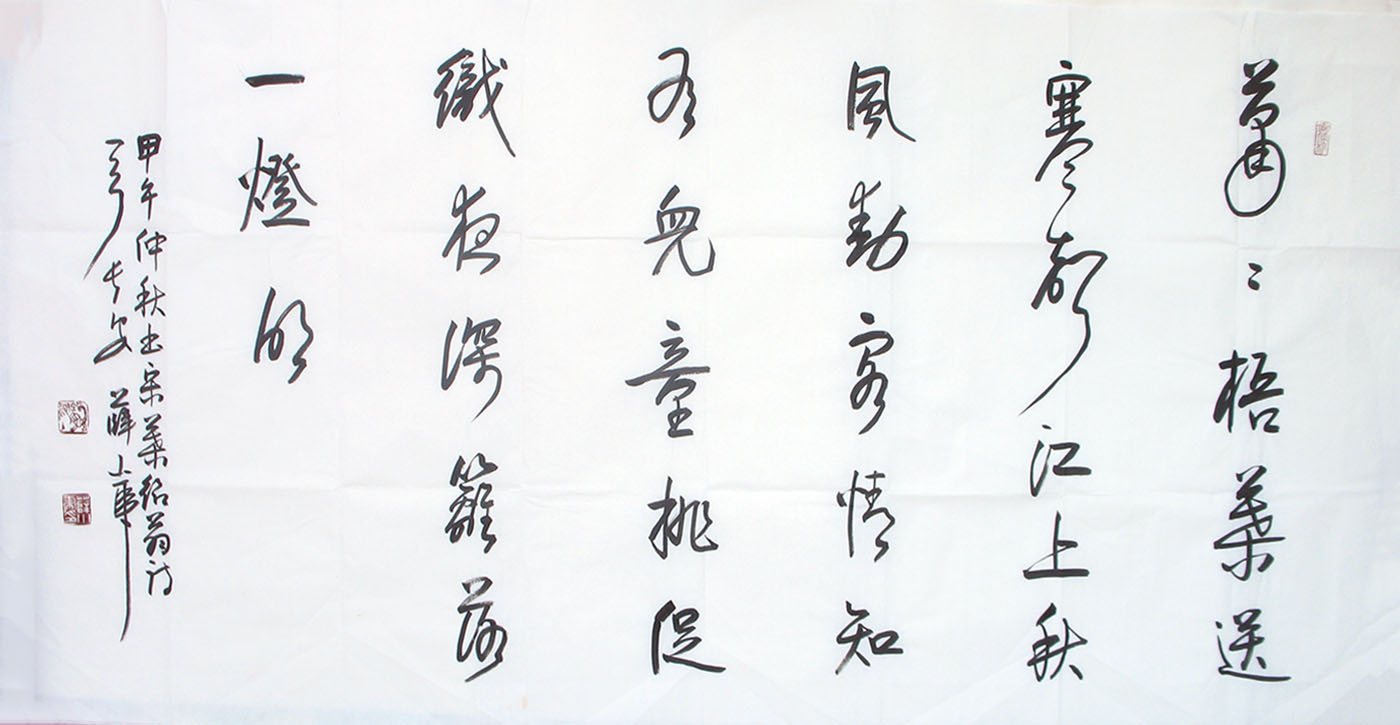 蕭〻梧葉送
寒聲江上秋
風動客情知
有兒童挑促
織夜深籬落
一燈明
甲午仲秋書宋葉紹翁詩
長安 薛上